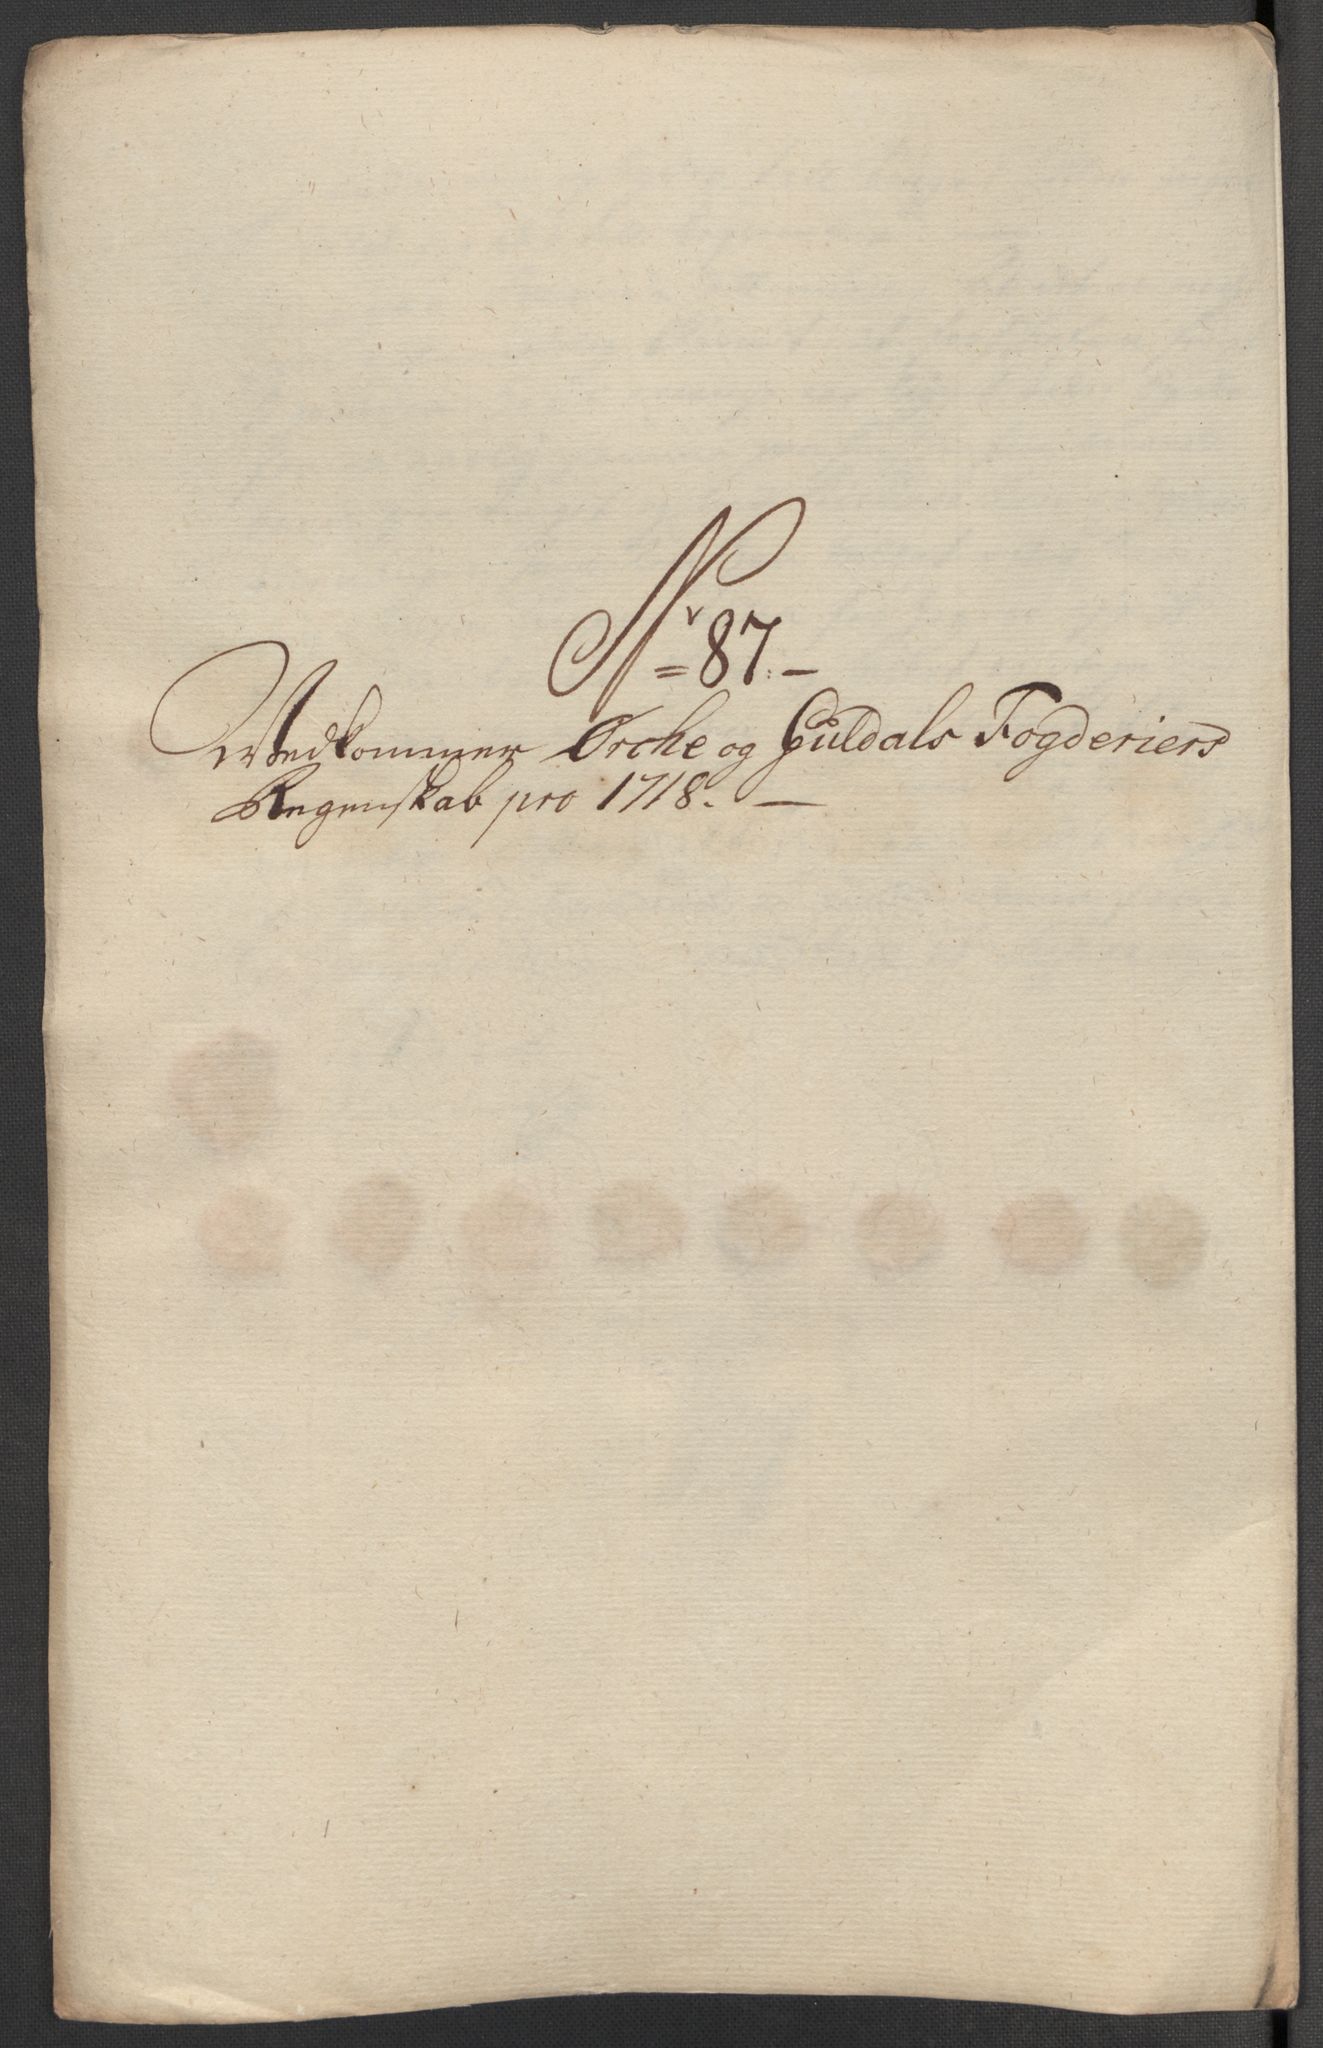 Nr 87.
Vedkommer Orche og Guldals Fogderiers
Regenskab pro 1718.